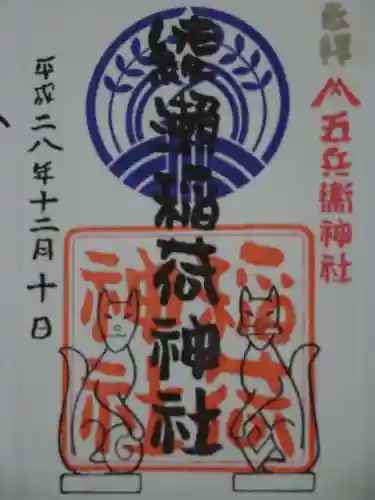 奉拝
五兵衛神社
綾瀬稲荷神社
平成二八年十二月十日
稲荷
神社